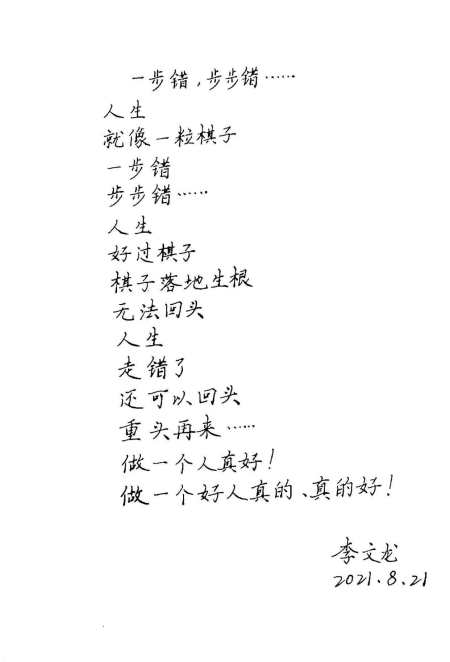 一步错，步步错……
人生
就像一粒棋子
一步错
步步错……
人生
好过棋子
棋子落地生根
无法回头
人生
走错了
还可以回头
重头再来……
做一个人真好！
做一个好人真的、真的好！
李文龙
2021.8.21